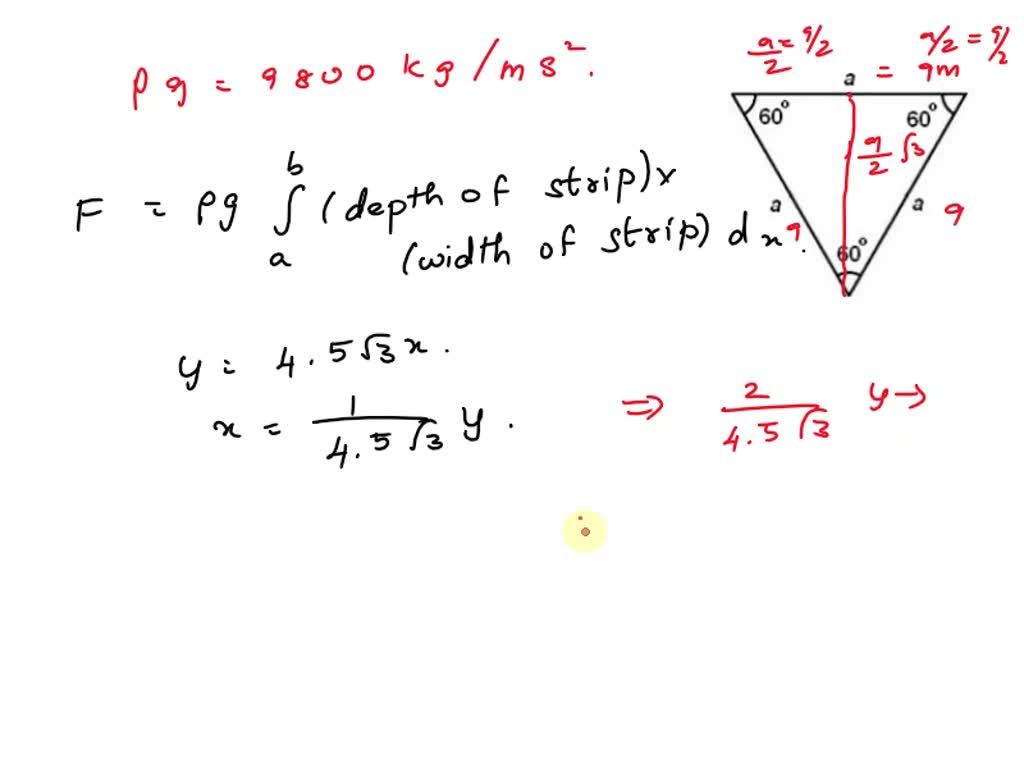 ρg = 9800 kg/ms².
F = ρg ∫ₐᵇ (depth of strip) x
(width of strip) dx.
y = 4.5√3 x.
x = 1/(4.5√3) y.
⇒ 2/(4.5√3) y →
a/2 = 9/2
a/2 = 9/2
a = 9m
60°
60°
9/2 √3
a 9
a 9
60°